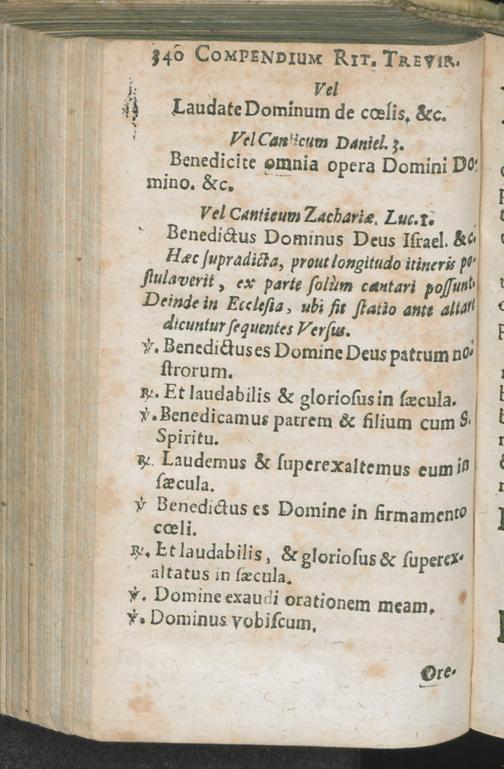 340 COMPENDIUM RIT. TREVIR.
Vel
Laudate Dominum de cœlis, &c.
Vel Canticum Daniel. 3.
Benedicite omnia opera Domini Do-
mino. &c.
Vel Canticum Zachariæ. Luc. 1.
Benedictus Dominus Deus Iſrael. &c.
Hæc ſupradicta, prout longitudo itineris po-
ſtulaverit, ex parte ſolùm cantari poſſunt.
Deinde in Eccleſia, ubi fit ſtatio ante altari
dicuntur ſequentes Verſus.
℣. Benedictus es Domine Deus patrum no-
ſtrorum.
℟. Et laudabilis & glorioſus in ſæcula.
℣. Benedicamus patrem & filium cum S.
Spiritu.
℟. Laudemus & ſuperexaltemus eum in
ſæcula.
℣ Benedictus es Domine in firmamento
cœli.
℟. Et laudabilis, & glorioſus & ſuperex-
altatus in ſæcula.
℣. Domine exaudi orationem meam.
℣. Dominus vobiſcum.
Ore-